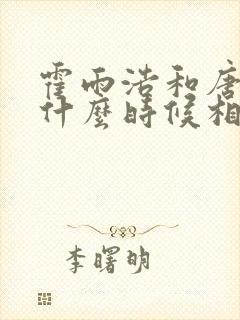 霍雨浩和唐
什麼時候相
李曙明